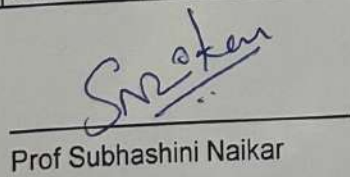 Prof Subhashini Naikar